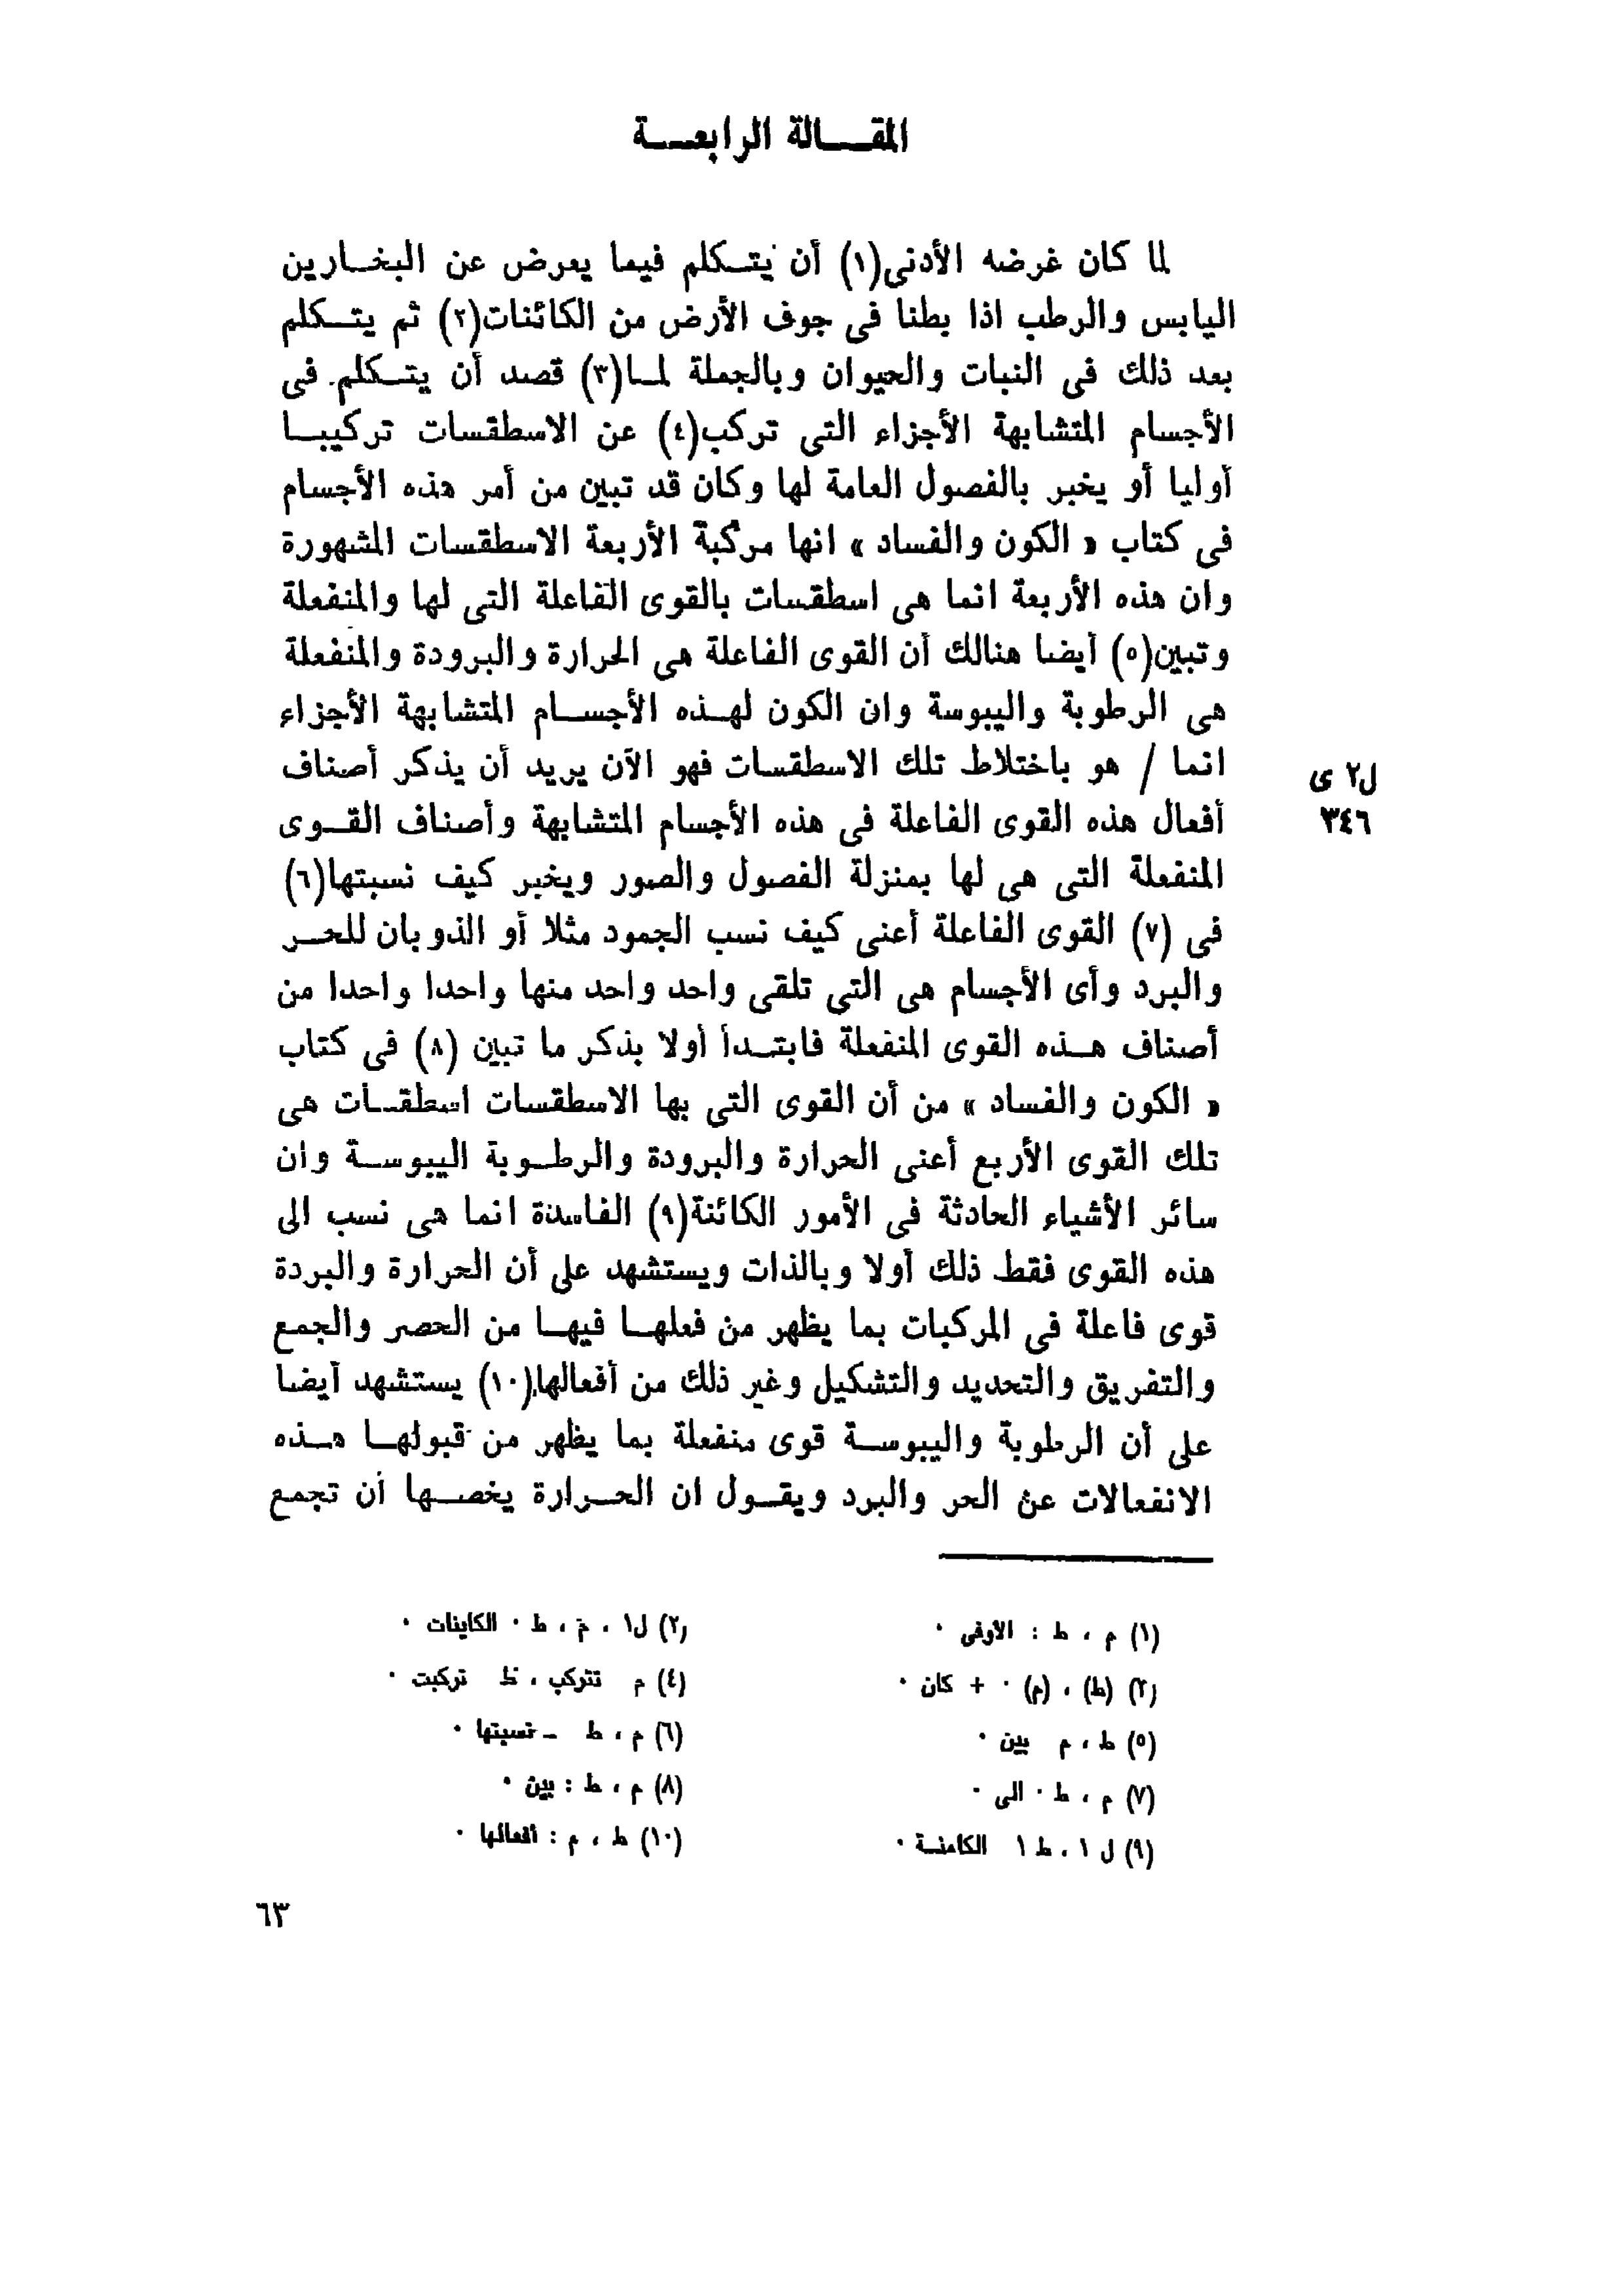 المقالة الرابعة
لما كان غرضه الأدنى(١) أن يتكلم فيما يعرض عن البخارين
اليابس والرطب اذا بطنا فى جوف الأرض من الكائنات(٢) ثم يتكلم
بعد ذلك فى النبات والحيوان وبالجملة لما(٣) قصد أن يتكلم فى
الأجسام المتشابهة الأجزاء التى تركب(٤) عن الاسطقسات تركيبا
أوليا أو يخبر بالفصول العامة لها وكان قد تبين من أمر هذه الأجسام
فى كتاب « الكون والفساد » انها مركبة الأربعة الاسطقسات المشهورة
وان هذه الأربعة انما هى اسطقسات بالقوى الفاعلة التى لها والمنفعلة
وتبين(٥) أيضا هنالك أن القوى الفاعلة هى الحرارة والبرودة والمنفعلة
هى الرطوبة واليبوسة وان الكون لهذه الأجسام المتشابهة الأجزاء
انما / هو باختلاط تلك الاسطقسات فهو الآن يريد أن يذكر أصناف
ل٢ ى
٣٤٦
أفعال هذه القوى الفاعلة فى هذه الأجسام المتشابهة وأصناف القوى
المنفعلة التى هى لها بمنزلة الفصول والصور ويخبر كيف نسبتها(٦)
فى (٧) القوى الفاعلة أعنى كيف نسب الجمود مثلا أو الذوبان للحر
والبرد وأى الأجسام هى التى تلقى واحد واحد منها واحدا واحدا من
أصناف هذه القوى المنفعلة فابتدأ أولا بذكر ما تبين (٨) فى كتاب
« الكون والفساد » من أن القوى التى بها الاسطقسات اسطقسات هى
تلك القوى الأربع أعنى الحرارة والبرودة والرطوبة اليبوسة وان
سائر الأشياء الحادثة فى الأمور الكائنة(٩) الفاسدة انما هى نسب الى
هذه القوى فقط ذلك أولا وبالذات ويستشهد على أن الحرارة والبردة
قوى فاعلة فى المركبات بما يظهر من فعلها فيها من الحصر والجمع
والتفريق والتحديد والتشكيل وغير ذلك من أفعالها(١٠) يستشهد أيضا
على أن الرطوبة واليبوسة قوى منفعلة بما يظهر من قبولها هذه
الانفعالات عن الحر والبرد ويقول ان الحرارة يخصها أن تجمع
(١) م ، ط : الأوفى ٠
(٢) ل١ ، م ، ط ٠ الكاينات ٠
(٣) (ط) ، (م) ٠ + كان ٠
(٤) م تتركب ، ط تركبت ٠
(٥) ط ، م بين ٠
(٦) م ، ط ـ نسبتها ٠
(٧) م ، ط ٠ الى ٠
(٨) م ، ط : بين ٠
(٩) ل ١ ، ط ١ الكامنة ٠
(١٠) ط ، م : أفعالها ٠
٦٣